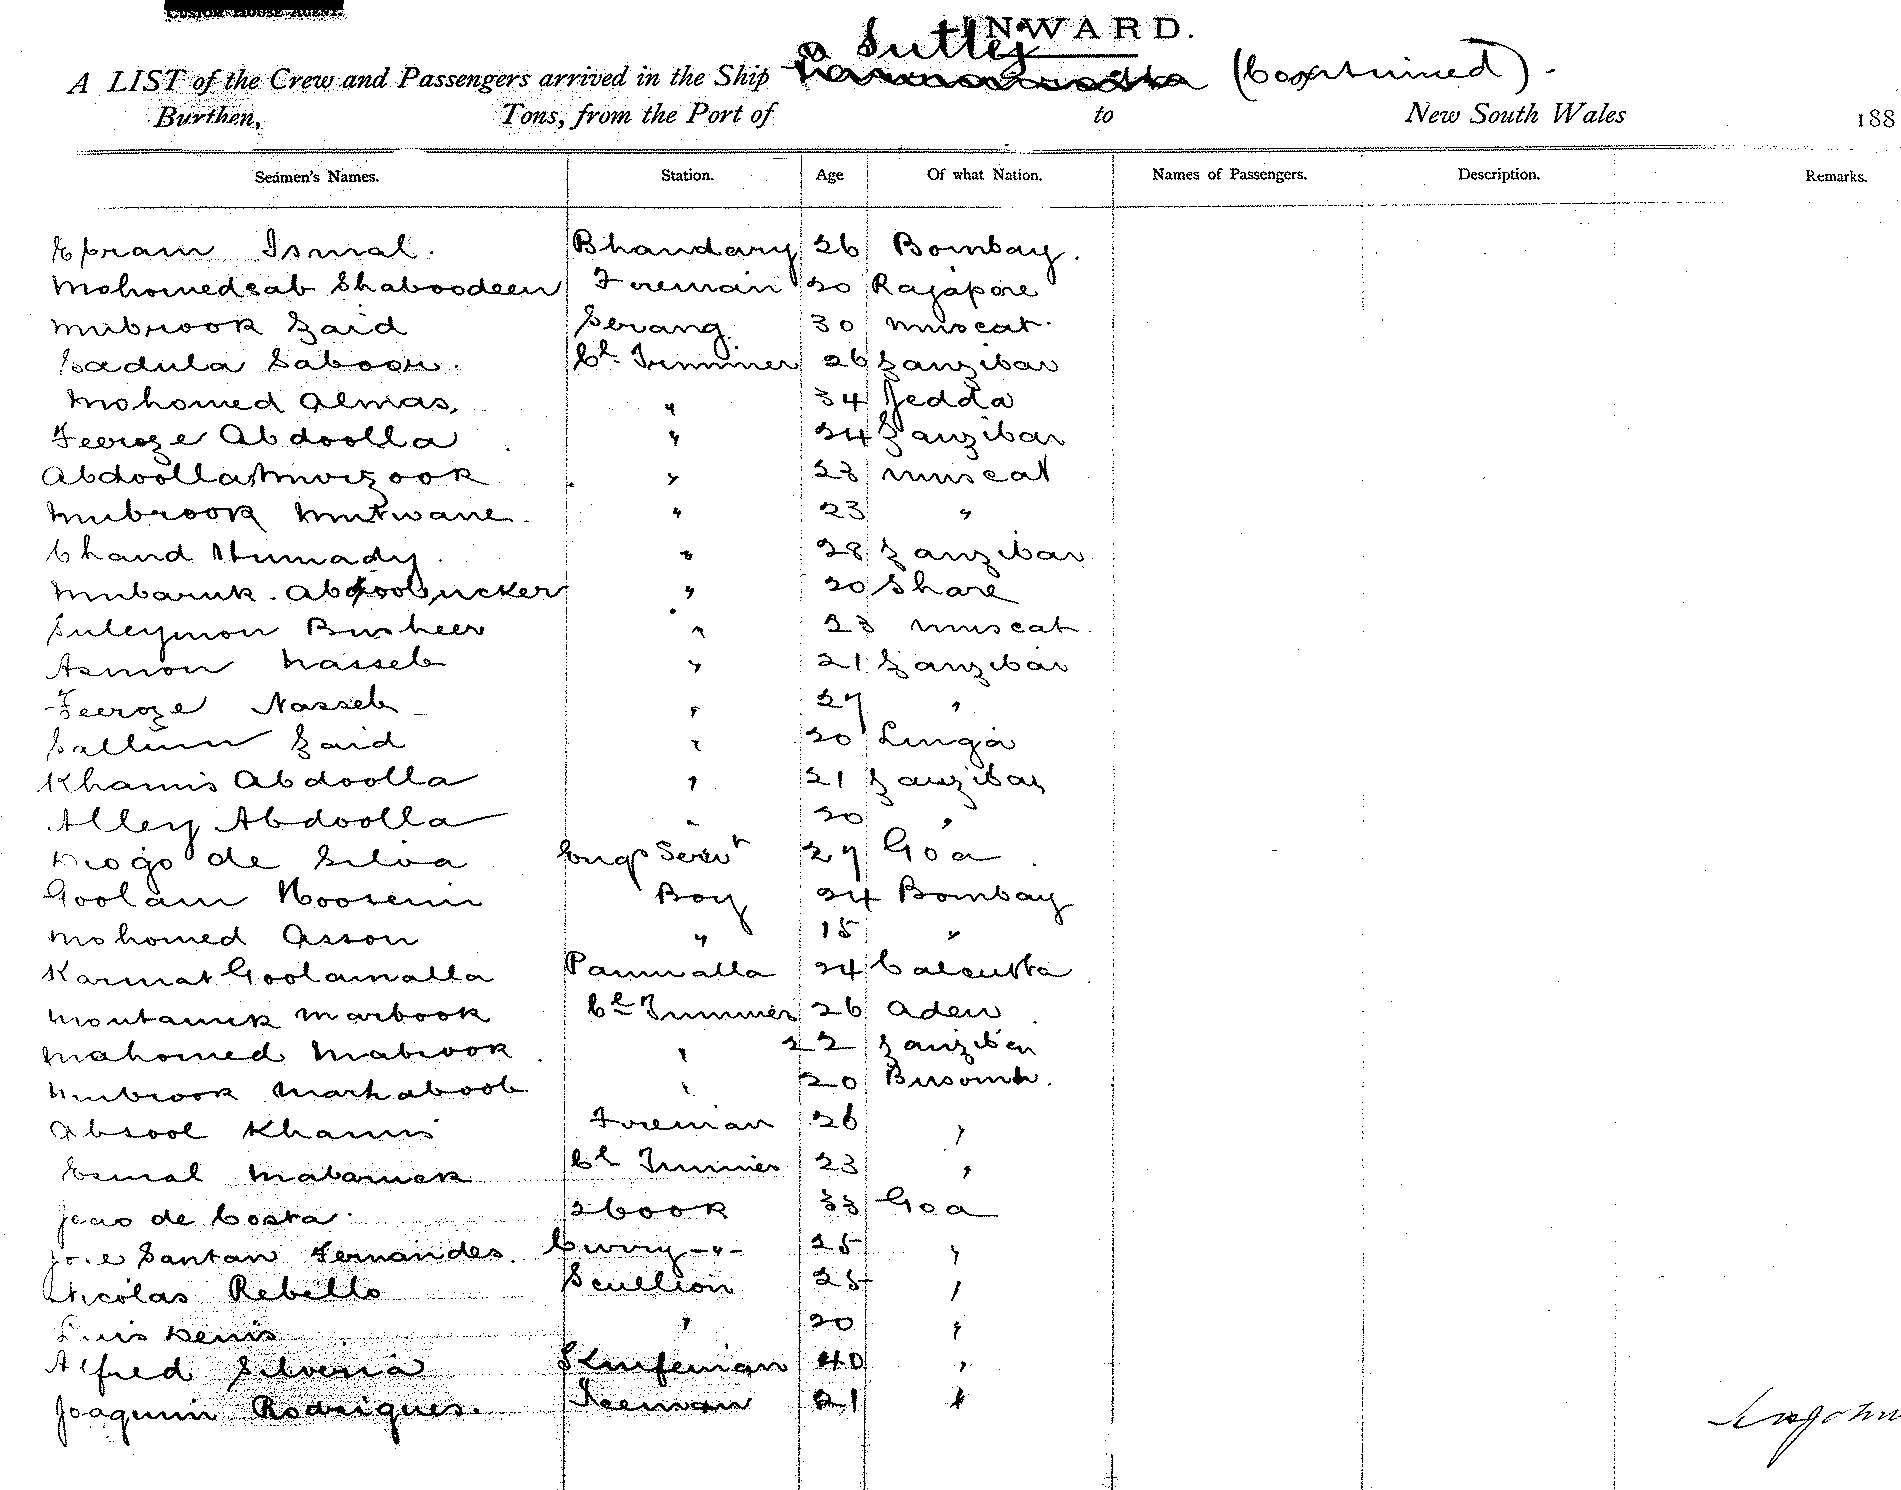 INWARD.
Sutlej
A LIST of the Crew and Passengers arrived in the Ship (Continued).
Burthen, Tons, from the Port of to New South Wales 188
Seamen's Names. Station. Age Of what Nation. Names of Passengers. Description. Remarks.
Ebram Ismal. Bhandary 26 Bombay.
Mohomedsab Shaboodeen Fireman 20 Rajapore
Mubrook Zaid Serang 30 Muscat.
Sadula Saboor. Cl Trimmer 26 Zanzibar
Mohomed Almas, " 34 Jedda
Feeroze Abdoolla " 24 Zanzibar
Abdoolla Murzook " 23 Muscat
Mubrook Mutwane. " 23 "
Chand Humady. " 28 Zanzibar
Mubaruk. Abdoobucker " 20 Share
Suleymon Busheer " 23 Muscat.
Asmon Nasseb " 21 Zanzibar
Feeroze Nasseb " 27 "
Sallum Zaid " 20 Linga
Khamis Abdoolla " 21 Zanzibar
Alley Abdoolla " 20 "
Diogo de Silva Engs Servt 27 Goa
Goolam Hoosein Boy 24 Bombay
Mohomed Asson " 15 "
Karmat Goolamalla Paniwalla 24 Calcutta
Moutamuk Marbook Cl Trimmer 26 Aden
Mahomed Mabrook " 22 Zanzibar
Mubrook Marhaboob " 20
Absool Khamis Fireman 26 "
Esmal Mabaruck Cl Trimmer 23 "
Joao de Costa. 2 Cook 33 Goa
Jose Santan Fernandes. Curry -"- 25 "
Nicolas Rebello Scullion 25 "
Luis Denis " 20 "
Alfred Silveria 40 "
Joaquim Rodrigues. 21 "